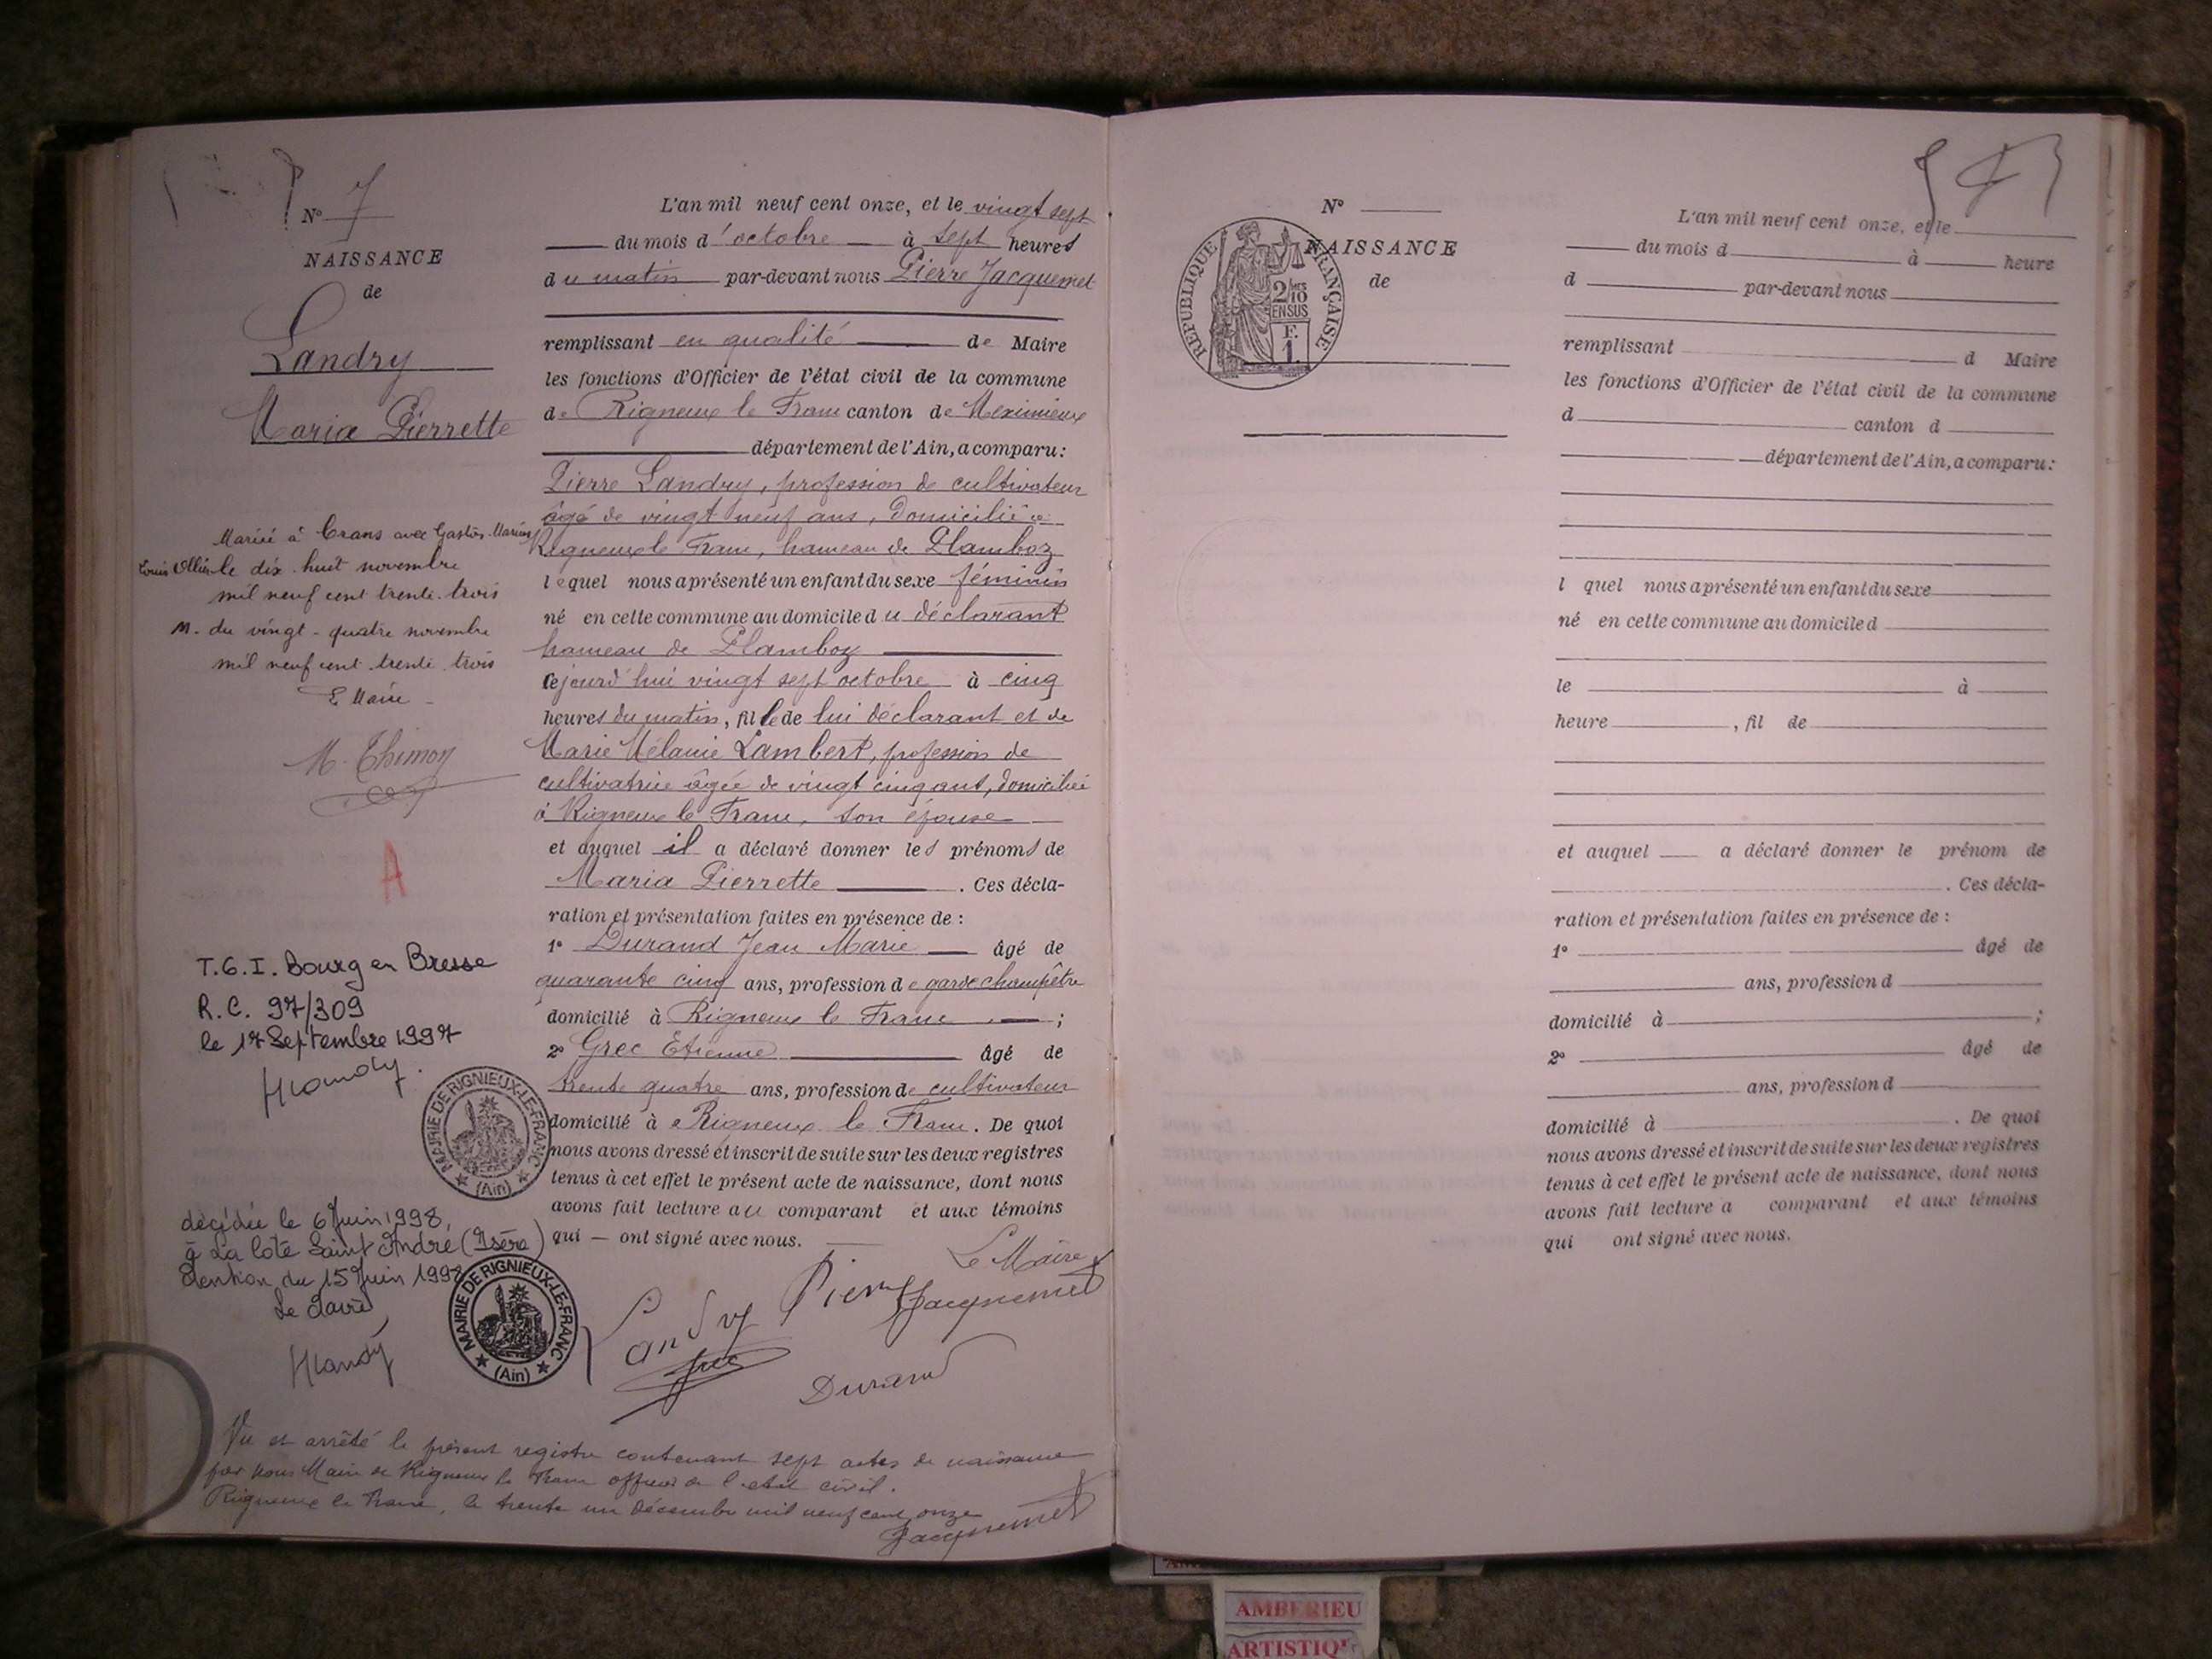 N° 7
NAISSANCE
de
Landry
Maria Pierrette
Mariée à Crans avec Gaston Marius
Louis Ollier le dix huit novembre
mil neuf cent trente-trois
M. du vingt-quatre novembre
mil neuf cent trente trois
Le Maire
M. Thimon
A
T.G.I. Bourg en Bresse
R.C. 97/309
le 17 Septembre 1997
MAIRIE DE RIGNIEUX-LE-FRANC
(Ain)
décédée le 6 Juin 1998,
à La Côte Saint André (Isère)
Mention du 15 Juin 1998
Le Maire
MAIRIE DE RIGNIEUX-LE-FRANC
(Ain)
L'an mil neuf cent onze, et le vingt sept
du mois d'octobre à sept heures
du matin par-devant nous Pierre Jacquemet
remplissant en qualité de Maire
les fonctions d'Officier de l'état civil de la commune
de Rigneux le Franc canton de Meximieux
département de l'Ain, a comparu:
Pierre Landry, profession de cultivateur
âgé de vingt neuf ans, domicilié à
Rigneux le Franc, hameau de Plamboz
lequel nous a présenté un enfant du sexe féminin
né en cette commune au domicile du déclarant
hameau de Plamboz
cejourd'hui vingt sept octobre à cinq
heures du matin, fille de lui déclarant et de
Marie Mélanie Lambert, profession de
cultivatrice âgée de vingt cinq ans, domiciliée
à Rigneux le Franc, son épouse
et auquel il a déclaré donner les prénoms de
Maria Pierrette. Ces décla-
ration et présentation faites en présence de :
1° Durand Jean Marie âgé de
quarante cinq ans, profession de garde champêtre
domicilié à Rigneux le Franc ;
2° Grec Etienne âgé de
trente quatre ans, profession de cultivateur
domicilié à Rigneux le Franc. De quoi
nous avons dressé et inscrit de suite sur les deux registres
tenus à cet effet le présent acte de naissance, dont nous
avons fait lecture au comparant et aux témoins
qui — ont signé avec nous.
Le Maire
Landry Pierre Jacquemet
Grec
Durand
Vu et arrêté le présent registre contenant sept actes de naissance
par nous Maire de Rigneux le Franc officier de l'état civil.
Rigneux le Franc, le trente un décembre mil neuf cent onze
Jacquemet
N°
REPUBLIQUE FRANÇAISE
2/10
EN SUS
F.
1.
NAISSANCE
de
L'an mil neuf cent onze, et le
du mois d à heure
d par-devant nous
remplissant d Maire
les fonctions d'Officier de l'état civil de la commune
d canton d
département de l'Ain, a comparu:
l quel nous a présenté un enfant du sexe
né en cette commune au domicile d
le à
heure , fil de
et auquel a déclaré donner le prénom de
. Ces décla-
ration et présentation faites en présence de :
1° âgé de
ans, profession d
domicilié à ;
2° âgé de
ans, profession d
domicilié à . De quoi
nous avons dressé et inscrit de suite sur les deux registres
tenus à cet effet le présent acte de naissance, dont nous
avons fait lecture a comparant et aux témoins
qui ont signé avec nous.
AMBERIEU
ARTISTIQUE